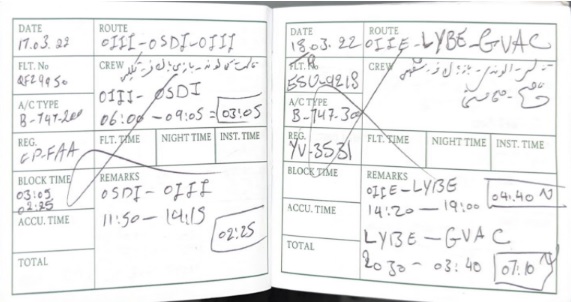 DATE
17.03.22
ROUTE
OIII-OSDI-OIII
FLT. No
QFZ9950
CREW
A/C TYPE
B-747-200
OIII- OSDI
06:00 - 09:05 = 03:05
REG.
EP-FAA
FLT. TIME
NIGHT TIME
INST. TIME
BLOCK TIME
03:05
02:25
REMARKS
OSDI- OIII
11:50 - 14:15
02:25
ACCU. TIME
TOTAL
DATE
18.03.22
ROUTE
OIIE-LYBE-GVAC
FLT. No
ESU-9218
CREW
A/C TYPE
B-747-300
REG.
YV-3531
FLT. TIME
NIGHT TIME
INST. TIME
BLOCK TIME
REMARKS
OIIE-LYBE
14:20 - 19:00
04:40 N
ACCU. TIME
LYBE - GVAC
TOTAL
2030 - 03:40
07:10 N